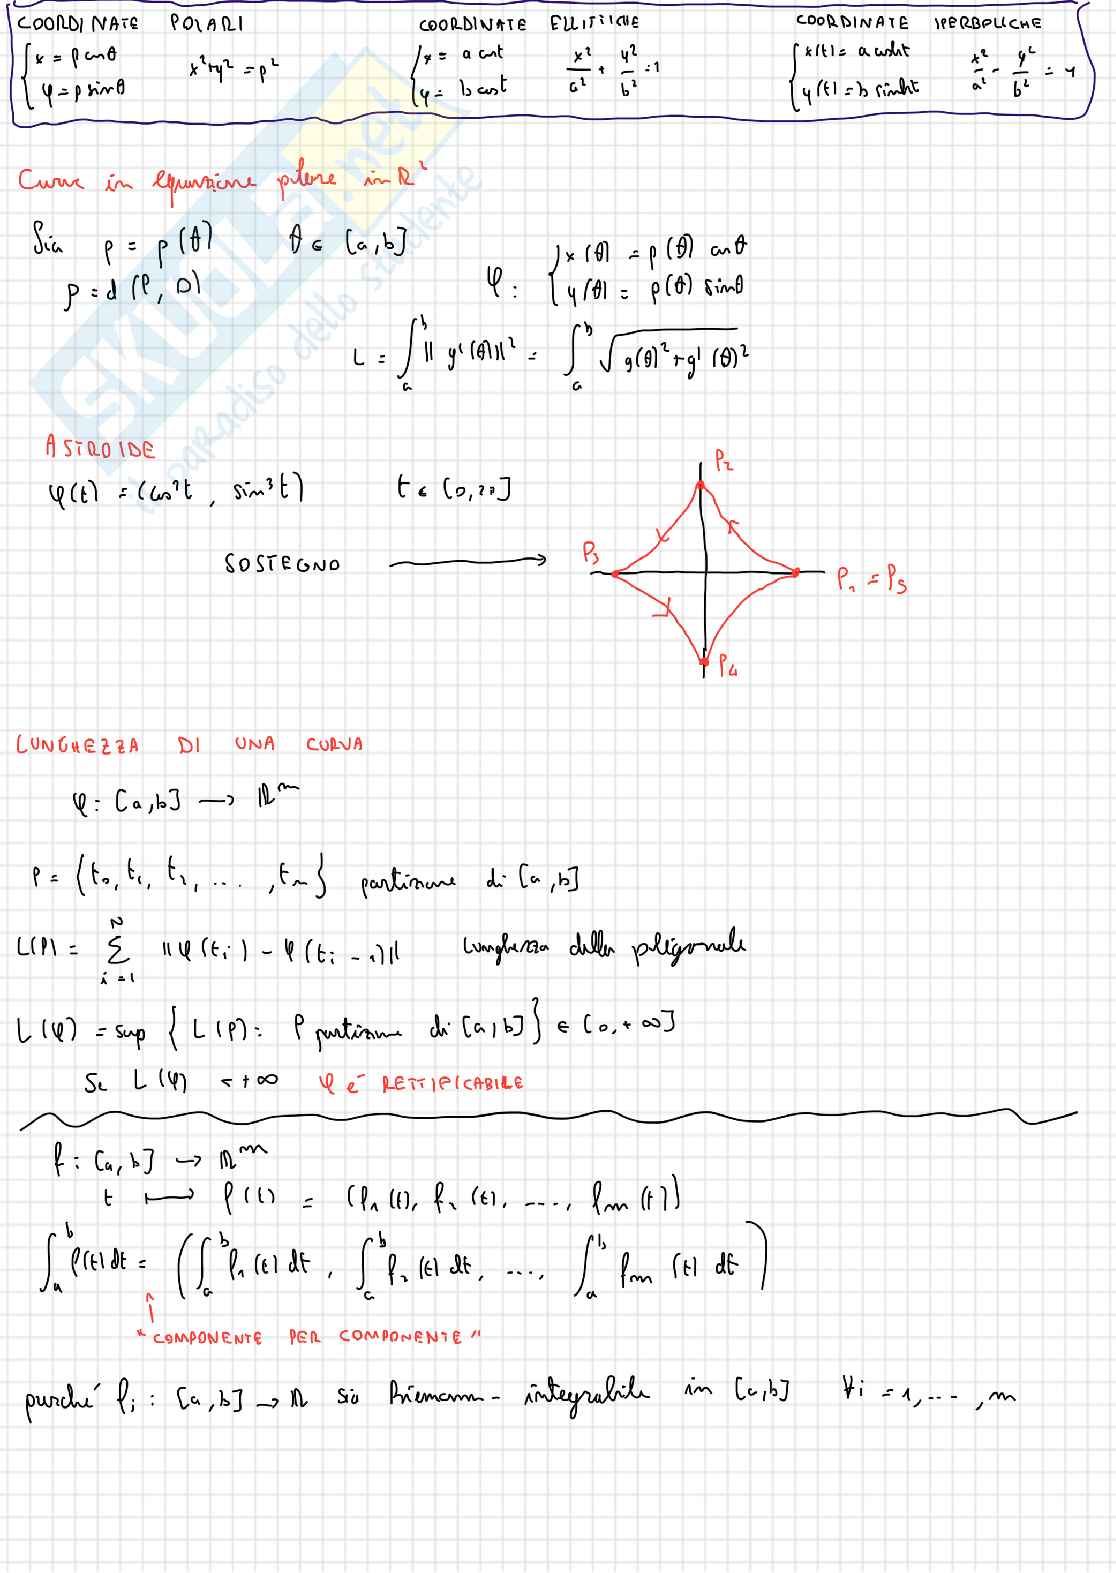 COORDINATE POLARI
{ x = ρ cosθ
y = ρ sinθ
x² + y² = ρ²
COORDINATE ELLITTICHE
{ x = a cost
y = b cost
x²/a² + y²/b² = 1
COORDINATE IPERBOLICHE
{ x(t) = a cosht
y(t) = b sinht
x²/a² - y²/b² = 1
Curve in equazione polare in R²
Sia ρ = ρ(θ) θ ∈ [a,b]
ρ = d(P, O)
φ: { x(θ) = ρ(θ) cosθ
y(θ) = ρ(θ) sinθ
L = ∫ₐᵇ ||g'(θ)||² = ∫ₐᵇ √(g(θ)² + g'(θ)²)
ASTROIDE
φ(t) = (cos³t, sin³t) t ∈ [0,2π]
SOSTEGNO →
P₂
P₃
P₁ = P₅
P₄
LUNGHEZZA DI UNA CURVA
φ: [a,b] → Rᵐ
P = {t₀, t₁, t₂, ..., tₙ} partizione di [a,b]
L(P) = Σᵢ₌₁ᴺ ||φ(tᵢ) - φ(tᵢ₋₁)|| lunghezza della poligonale
L(φ) = sup { L(P): P partizione di [a,b] } ∈ [0,+∞]
Se L(φ) < +∞ φ è RETTIFICABILE
f: [a,b] → Rᵐ
t ↦ f(t) = (f₁(t), f₂(t), ...., fm(t))
∫ₐᵇ f(t) dt = (∫ₐᵇ f₁(t) dt, ∫ₐᵇ f₂(t) dt, ..., ∫ₐᵇ fm(t) dt)
"COMPONENTE PER COMPONENTE"
purché fᵢ: [a,b] → R sia Riemann-integrabile in [a,b] ∀i = 1,...,m
SKUOLA.net
il paradiso dello studente